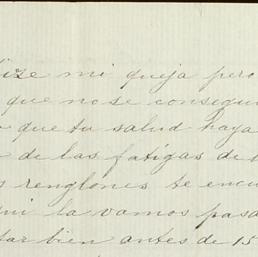 ize mi queja pero
que no se consegui
que tu salud haya
de las fatigas de
s renglones te encu
ui la vamos pasa
tar bien antes de 15